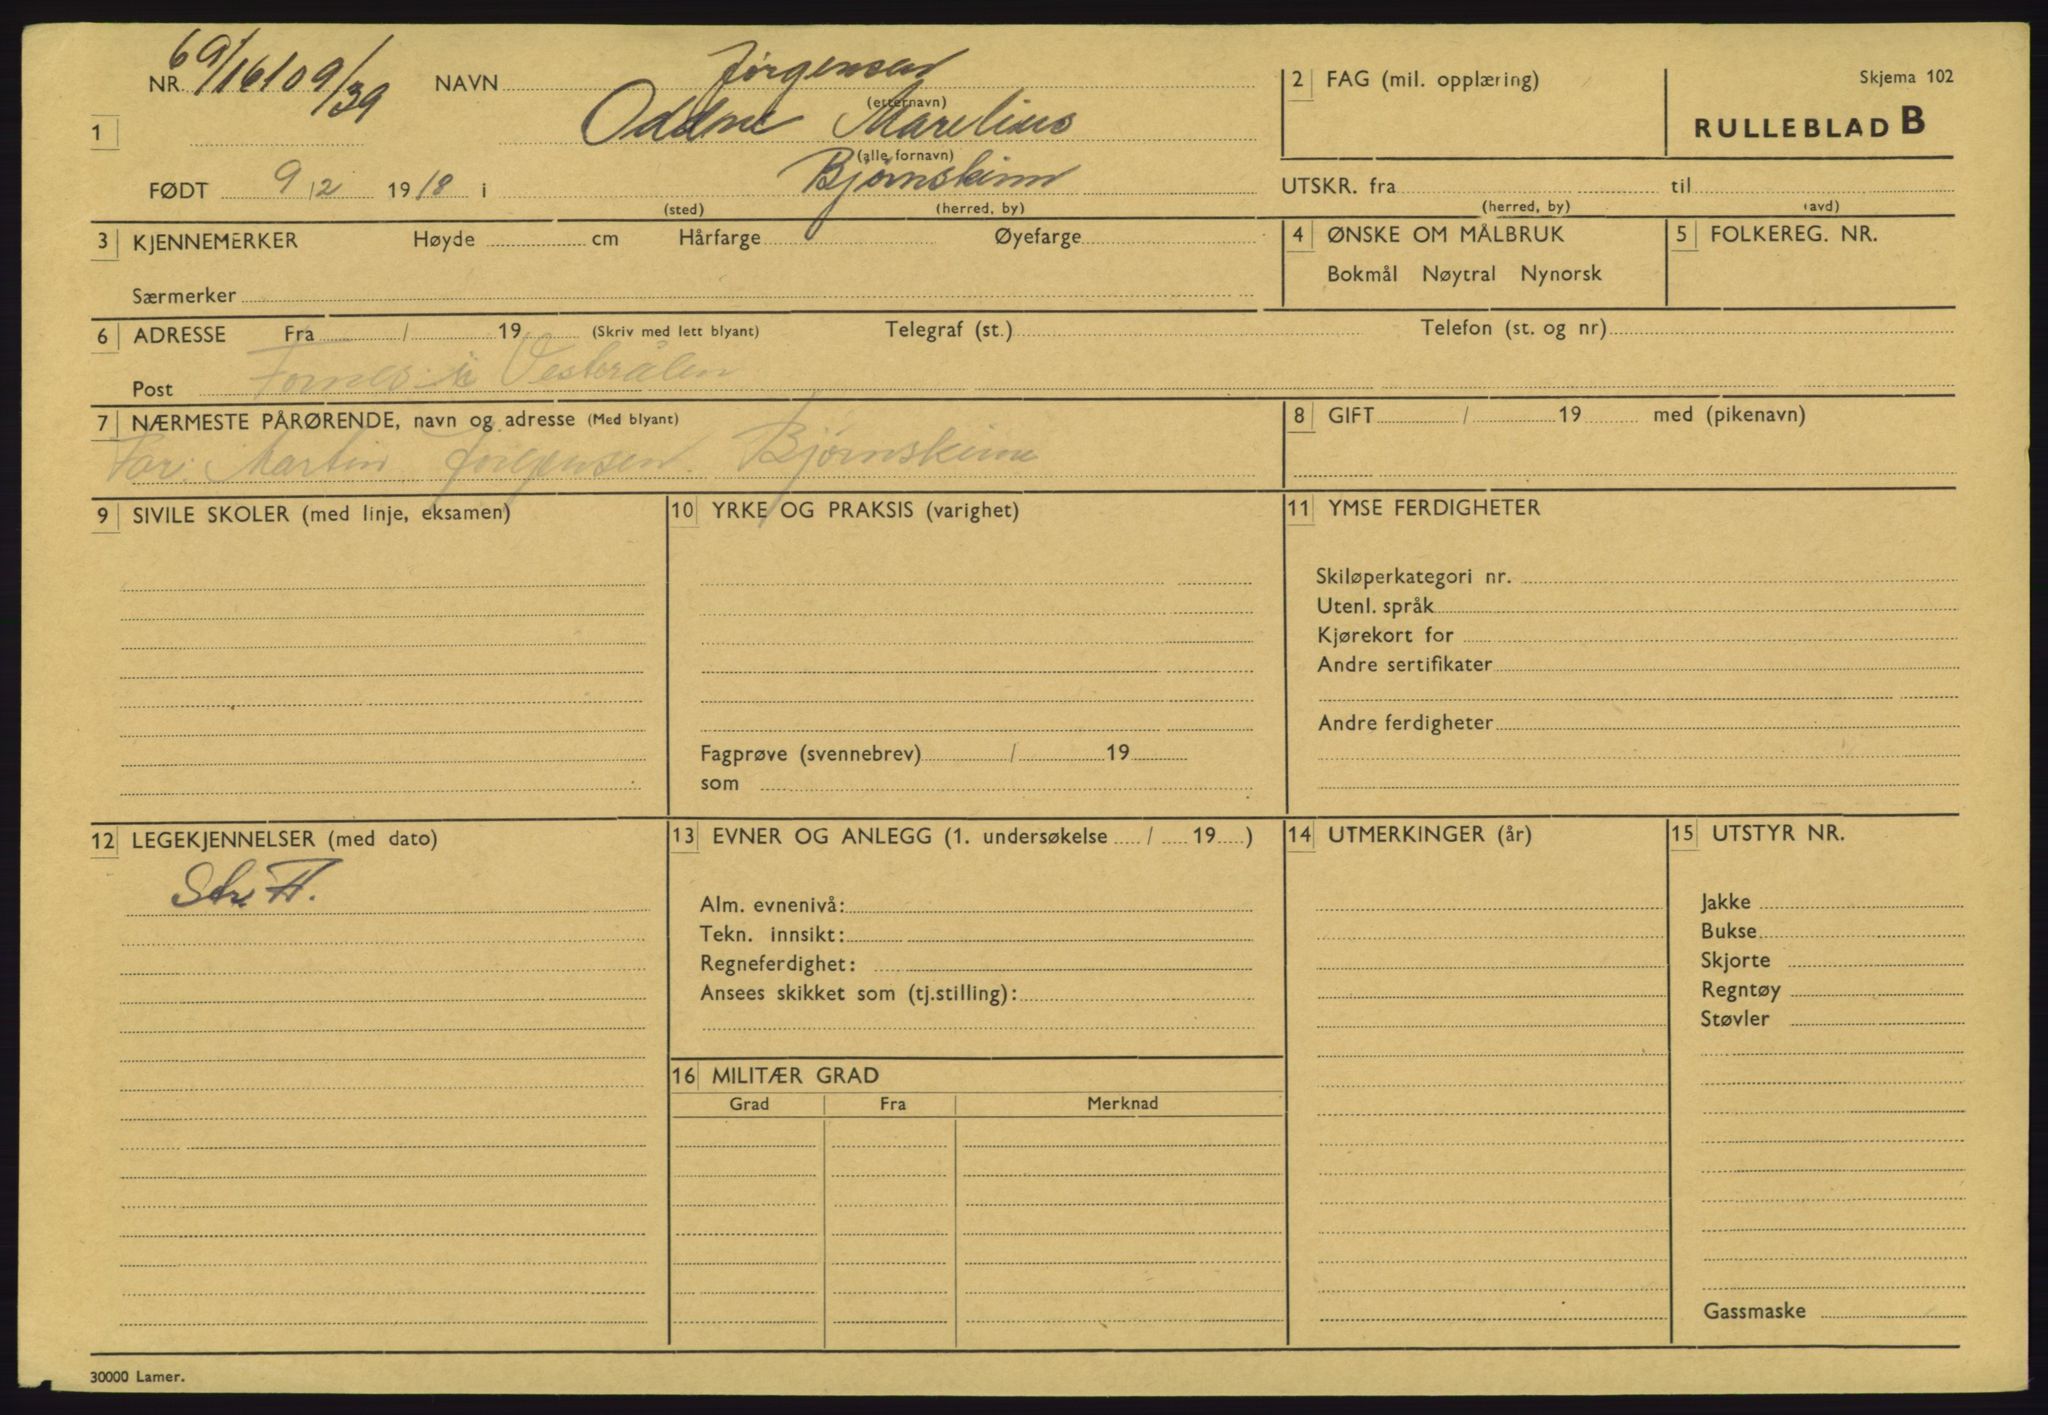 NR. 69/16109/39 NAVN Jørgensen
(etternavn)
2 FAG (mil. opplæring)
Skjema 102
RULLEBLAD B
1 Oddne Marelius
(alle fornavn)
FØDT 9/2 1918 i Bjørnskinn
(sted) (herred, by)
UTSKR. fra til
(herred, by) (avd)
3 KJENNEMERKER Høyde cm Hårfarge Øyefarge
Særmerker
4 ØNSKE OM MÅLBRUK
Bokmål Nøytral Nynorsk
5 FOLKEREG. NR.
6 ADRESSE Fra / 19 (Skriv med lett blyant) Telegraf (st.) Telefon (st. og nr)
Post Fornes i Vesterålen
7 NÆRMESTE PÅRØRENDE, navn og adresse (Med blyant)
Far: Martin Jørgensen Bjørnskinn
8 GIFT / 19 med (pikenavn)
9 SIVILE SKOLER (med linje, eksamen)
10 YRKE OG PRAKSIS (varighet)
Fagprøve (svennebrev) / 19
som
11 YMSE FERDIGHETER
Skiløperkategori nr.
Utenl. språk
Kjørekort for
Andre sertifikater
Andre ferdigheter
12 LEGEKJENNELSER (med dato)
Str. A.
13 EVNER OG ANLEGG (1. undersøkelse / 19 )
Alm. evnenivå:
Tekn. innsikt:
Regneferdighet:
Ansees skikket som (tj.stilling):
14 UTMERKINGER (år)
15 UTSTYR NR.
Jakke
Bukse
Skjorte
Regntøy
Støvler
Gassmaske
16 MILITÆR GRAD
Grad Fra Merknad
30000 Lamer.